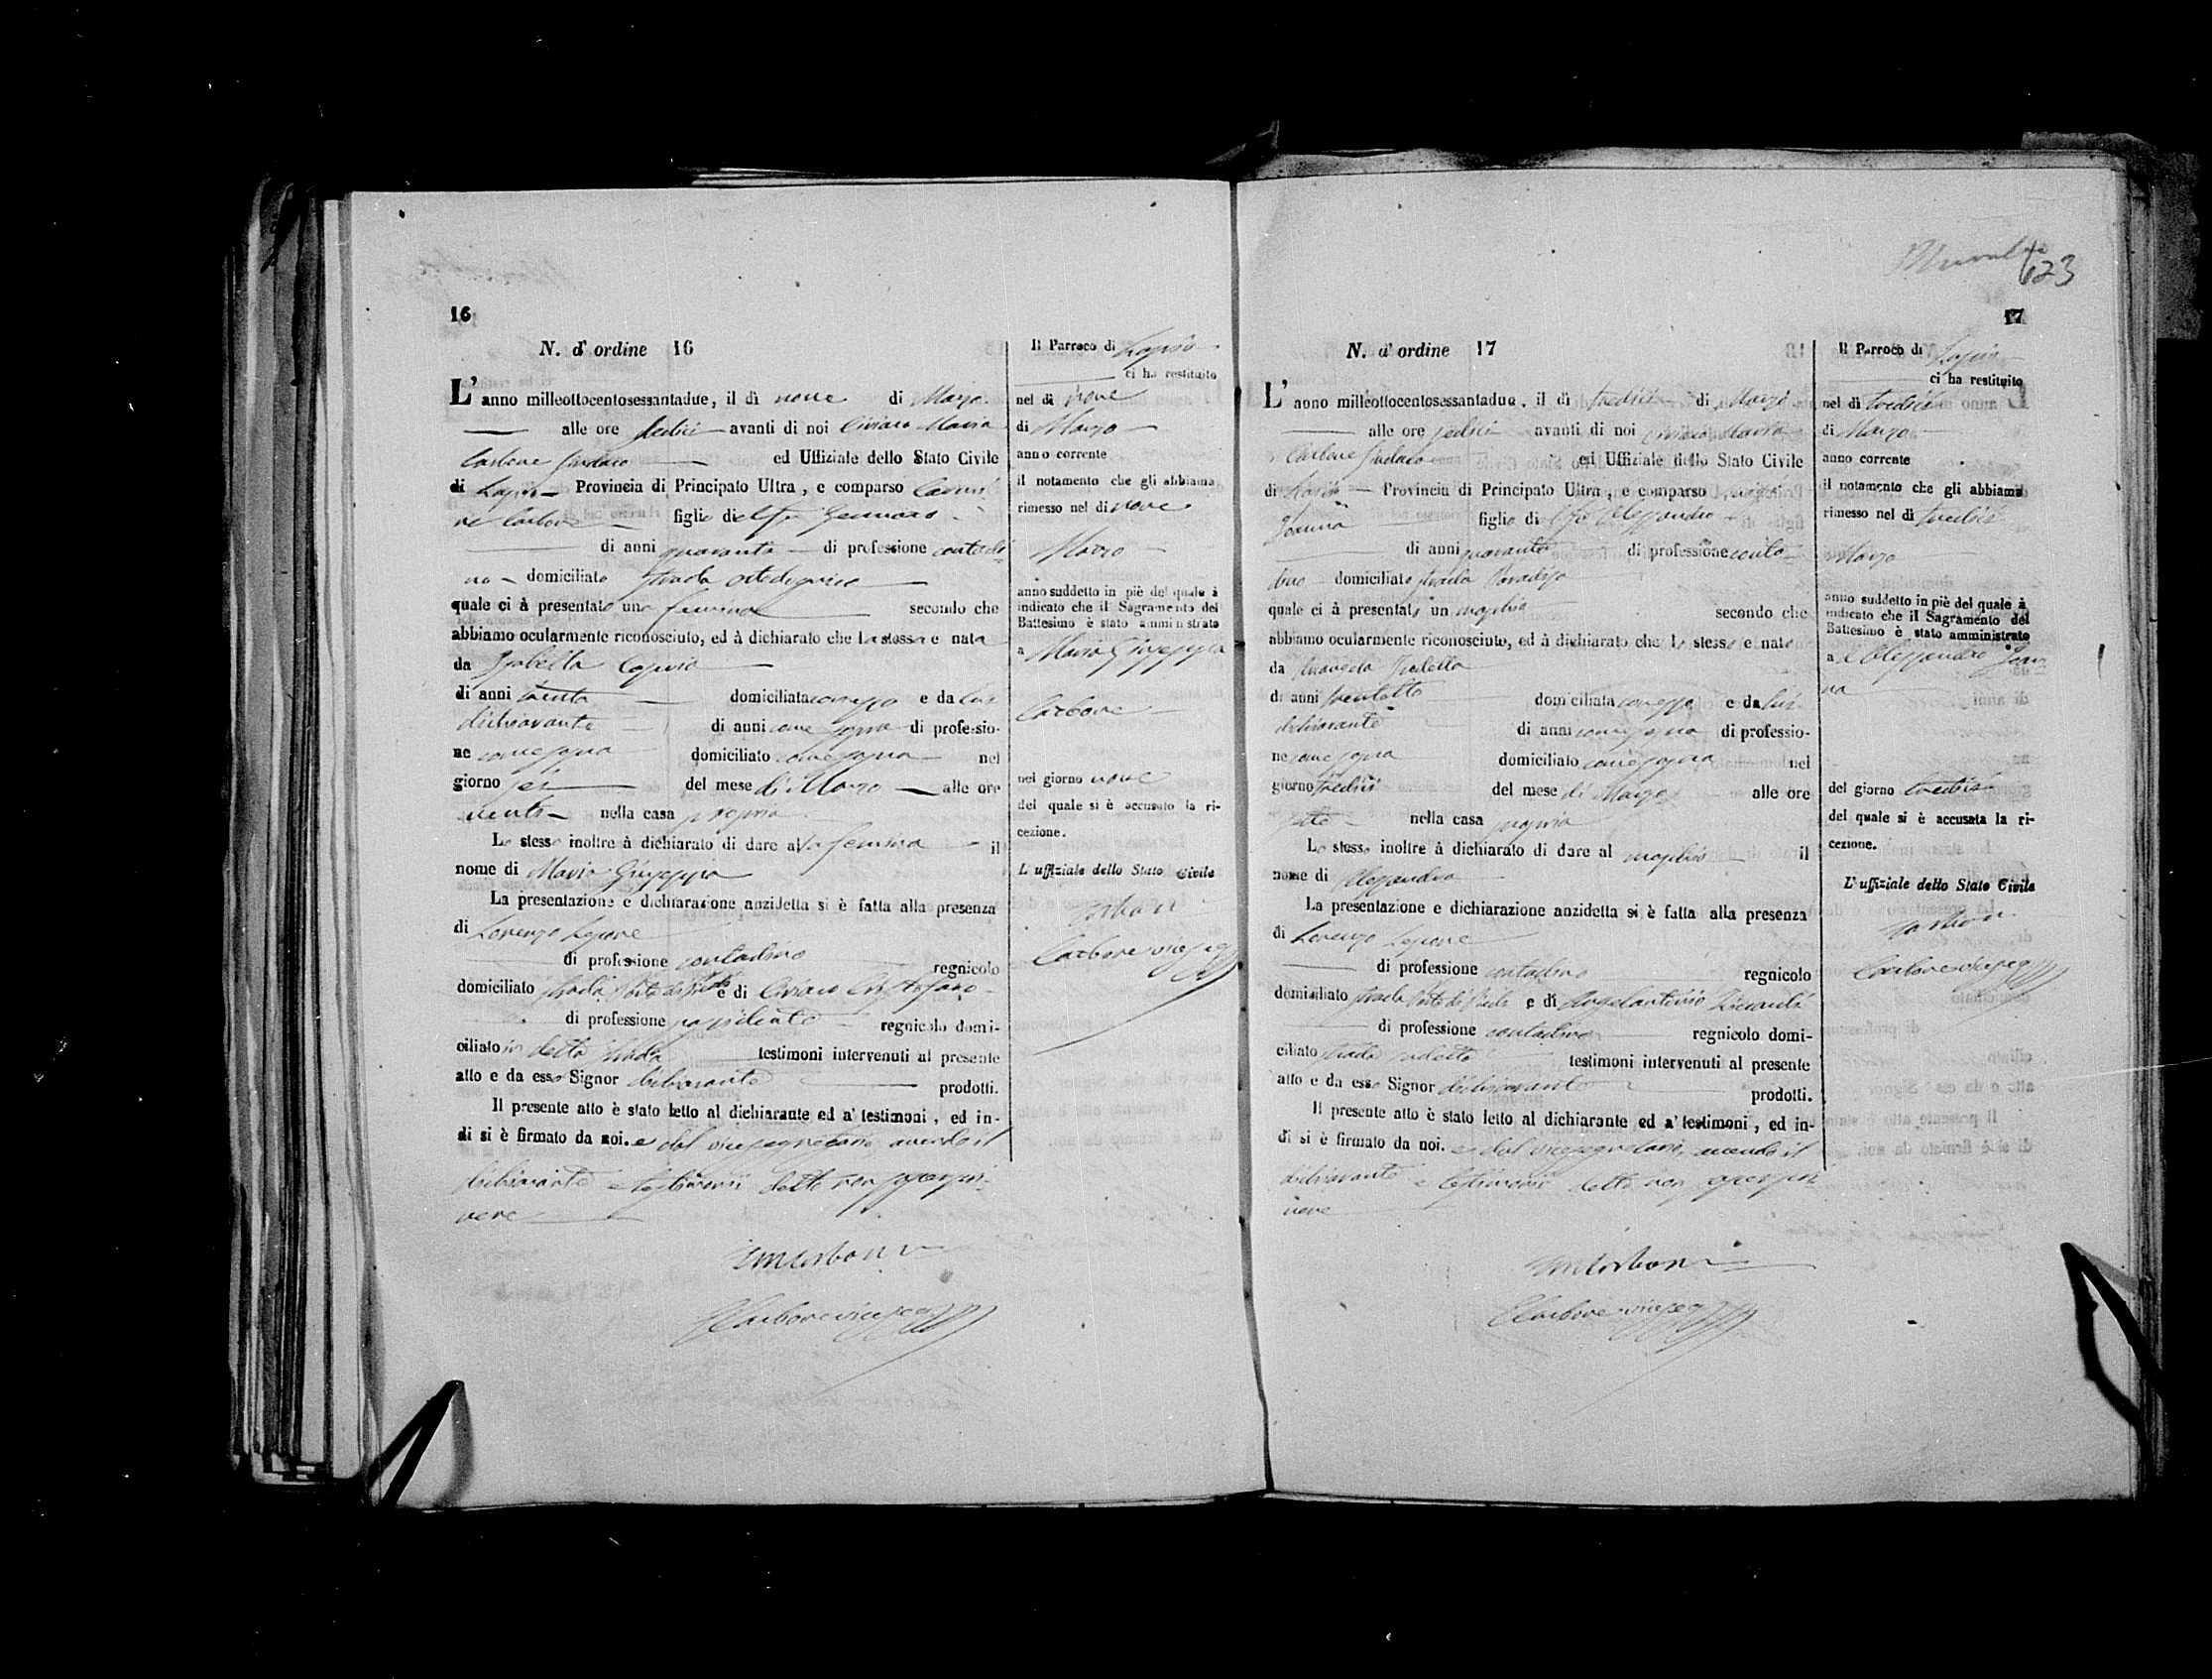 123
16
N. d'ordine 16
L'anno milleottocentosessantadue, il di nove di Marzo
alle ore sedici avanti di noi Ciriaco Maria
Carbone Sindaco ed Uffiziale dello Stato Civile
di Lapio Provincia di Principato Ultra, e comparso Carmi
ne Carbone figlio di Gennaro
di anni quaranta di professione contadi
no domiciliato strada
quale ci à presentato una femmina secondo che
abbiamo ocularmente riconosciuto, ed à dichiarato che la stessa e nata
da Isabella Caputo
di anni trenta domiciliata con esso e da lui
dichiarante di anni come sopra di professio-
ne come sopra domiciliato come sopra nel
giorno sei del mese di Marzo alle ore
venti nella casa propria
Lo stesso inoltre à dichiarato di dare alla femina il
nome di Maria Giuseppa
La presentazione e dichiarazione anzidetta si è fatta alla presenza
di Lorenzo Lepore
di professione contadino regnicolo
domiciliato strada e di Ciriaco Cristofaro
di professione possidente regnicolo domi-
ciliato in detta strada testimoni intervenuti al presente
atto e da esso Signor dichiarante prodotti.
Il presente atto è stato letto al dichiarante ed a' testimoni, ed in-
di si è firmato da noi. e dal vicesegretario, avendo il
dichiarante e testimoni detto non saper scri
vere
Carbone viceseg
Il Parroco di Lapio
ci ha restituito
nel di nove
di Marzo
anno corrente
il notamento che gli abbiamo
rimesso nel di nove
Marzo
anno suddetto in piè del quale à
indicato che il Sagramento del
Battesimo è stato amministrato
a Maria Giuseppa
Carbone
nel giorno nove
del quale si è accusato la ri-
cezione.
L'uffiziale dello Stato Civile
Carbone viceseg
17
N. d'ordine 17
L'anno milleottocentosessantadue, il di tredici di Marzo
alle ore sedici avanti di noi Ciriaco Maria
Carbone Sindaco ed Uffiziale dello Stato Civile
di Lapio Provincia di Principato Ultra, e comparso
figlio di Alessandro
di anni quaranta di professione conta
dino domiciliato strada Paradiso
quale ci à presentato un maschio secondo che
abbiamo ocularmente riconosciuto, ed à dichiarato che lo stesso e nato
da
di anni trentotto domiciliata con esso e da lui
dichiarante di anni come sopra di professio-
ne come sopra domiciliato come sopra nel
giorno tredici del mese di Marzo alle ore
otto nella casa propria
Lo stesso inoltre à dichiarato di dare al maschio il
nome di Alessandro
La presentazione e dichiarazione anzidetta si è fatta alla presenza
di Lorenzo Lepore
di professione contadino regnicolo
domiciliato strada e di Angelantonio
di professione contadino regnicolo domi-
ciliato strada sudetta testimoni intervenuti al presente
atto e da esso Signor dichiarante prodotti.
Il presente atto è stato letto al dichiarante ed a' testimoni, ed in-
di si è firmato da noi. e dal vicesegretario, avendo il
dichiarante e testimoni detto non saper scri
vere
Carbone viceseg
Il Parroco di Lapio
ci ha restituito
nel di tredici
di Marzo
anno corrente
il notamento che gli abbiamo
rimesso nel di tredici
Marzo
anno suddetto in piè del quale à
indicato che il Sagramento del
Battesimo è stato amministrato
a Alessandro
del giorno tredici
del quale si è accusata la ri-
cezione.
L'uffiziale dello Stato Civile
Carbone viceseg